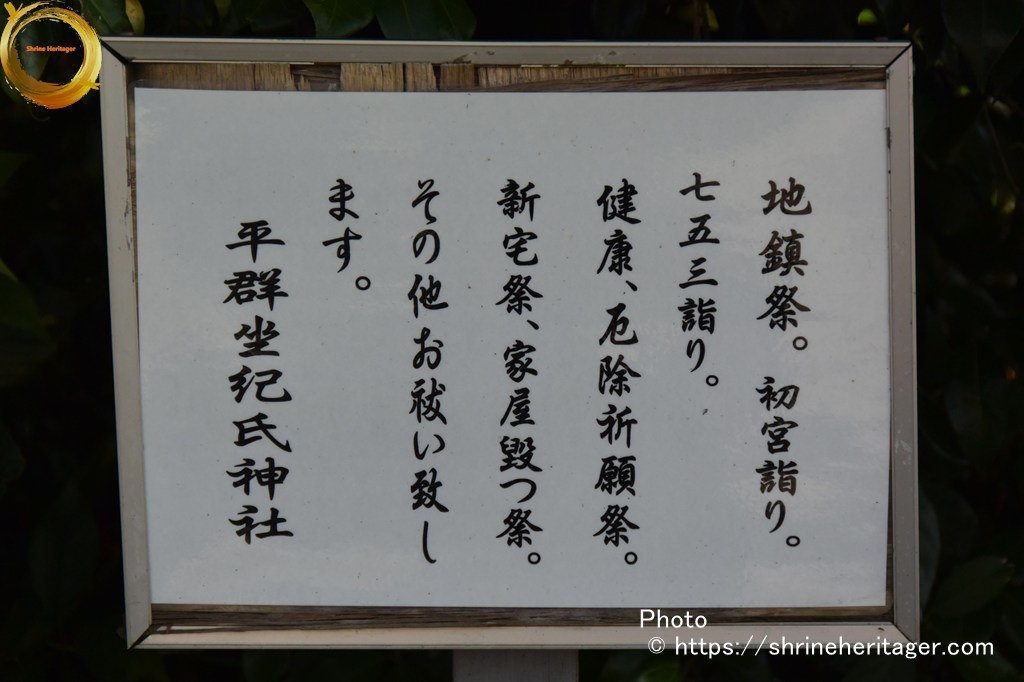 地鎮祭。初宮詣り。
七五三詣り。
健康、厄除祈願祭。
新宅祭、家屋毀つ祭。
その他お祓い致し
ます。
平群坐紀氏神社
Shrine Heritager
Photo
© https://shrineheritager.com